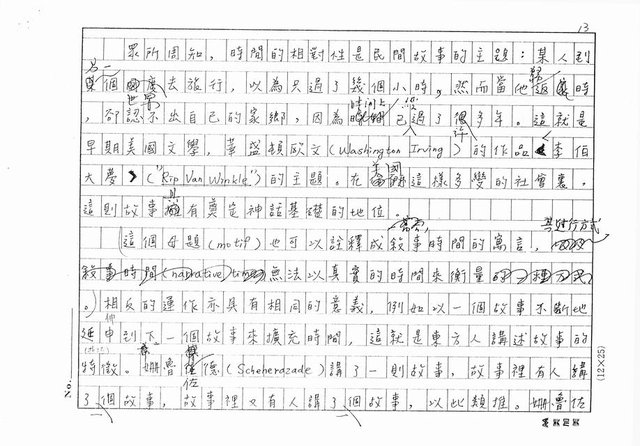 13
眾所周知，時間的相對性是民間故事的主題：某人到
另一個世界去旅行，以為只過了幾個小時，然而當他返家時
，卻認不出自己的家鄉，因為時間上已過了很多年。這就是
早期美國文學，華盛頓歐文（Washington Irving）的作品李伯
大夢（"Rip Van Winkle"）的主題。在美國這樣多變的社會裏，
這則故事具有奠定神話基礎的地位。
（這個母題（motif）也可以詮釋成敘事時間的寓言，其進行方式
無法以真實的時間來衡量
。）相反的運作亦具有相同的意義，例如以一個故事不斷地
延伸到下一個故事來擴充時間，這就是東方人講述故事的
特徵。姍魯佐德（Scheherazade）講了一則故事，故事裡有人講
了一個故事，故事裡又有人講了一個故事，以此類推。姍魯佐
No.
(12×25)